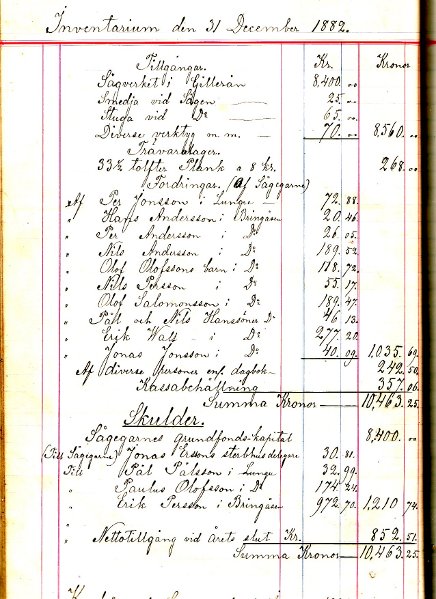 Inventarium den 31 December 1882.
Tillgångar. Kr. Kronor
Sågverket i Gitterån 8,400. "
Smedja vid Sågen — 25. "
Stuga vid Do — 65. "
Diverse verktyg m.m. — 70. " 8,560. "
Trävarulager.
33½ tolfter Plank a 8 kr. 268. "
Fordringar. (af Sågegarne)
Af Per Jonsson i Lunge — 72. 88.
" Hans Andersson i Bringåsen 20. 46.
" Per Andersson i Do 26. 05.
" Nils Andersson i Do 189. 52.
" Olof Olofssons barn i Do 118. 72.
" Nils Persson i Do 55. 17.
" Olof Salomonsson i Do 189. 47.
" Påll och Nils Hanssöner Do 46. 13.
" Erik Wall — i Do 277. 20.
" Jonas Jonsson i Do 40. 09. 1,035. 69.
Af diverse personer enl. dagbok — 242. 50.
Kassabehållning 357. 06.
Summa Kronor — 10,463. 25.
Skulder.
Sågegarnes Grundfonds-kapital 8,400. "
(Till Sågegarne) Jonas Erssons sterbhusdelegare 30. 81.
Till Pål Pålsson i Lunge 32. 99.
" Paulus Olofsson i Do 174. 24.
" Erik Persson i Bringåsen 972. 70. 1,210 74.
" Nettotillgång vid årets slut Kr. 852. 51.
Summa Kronor — 10,463. 25.